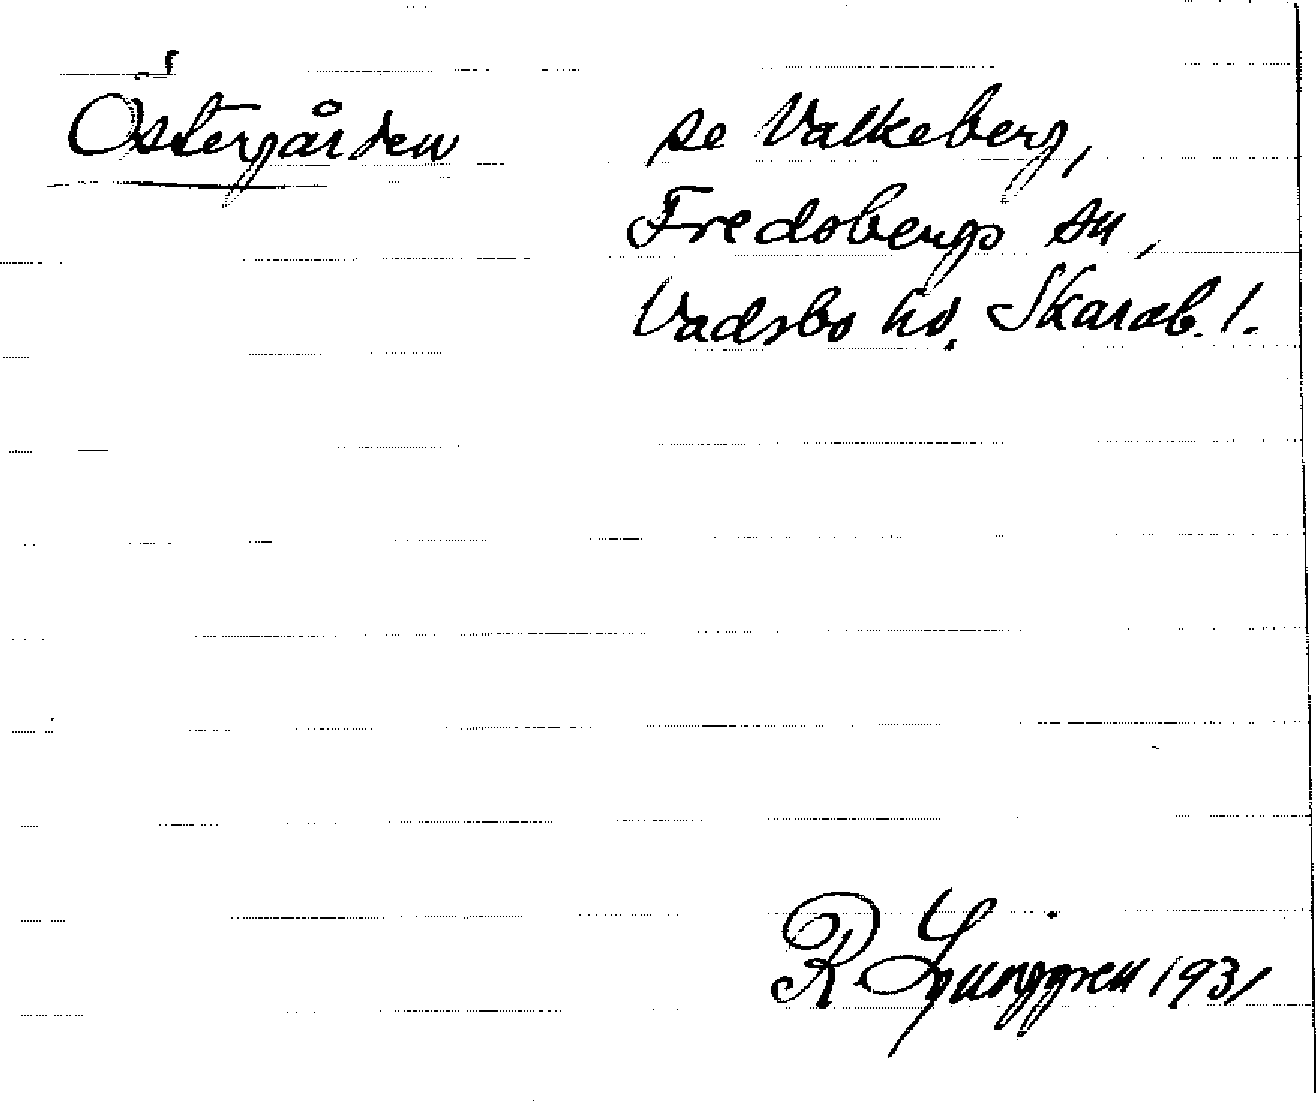 Östergården se Valkeberg,
Fredsbergs sn,
Vadsbo hd. Skarab. l.
R Ljunggren 1931